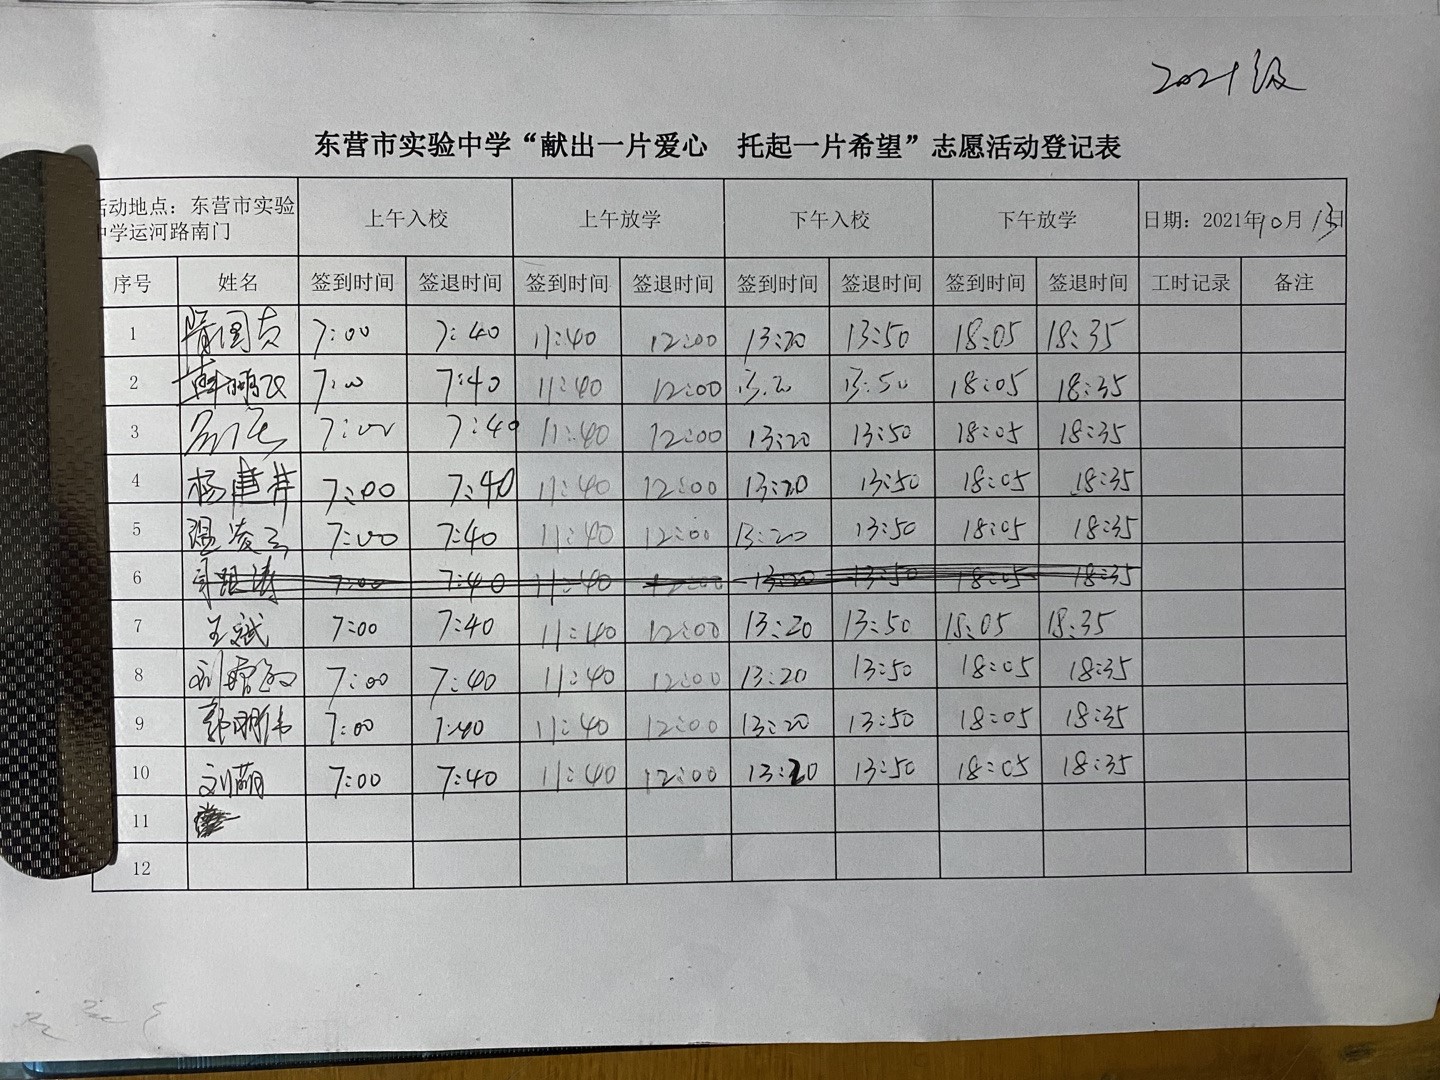 2021级
东营市实验中学“献出一片爱心 托起一片希望”志愿活动登记表
活动地点：东营市实验 上午入校 上午放学 下午入校 下午放学 日期：2021年10月13日
中学运河路南门
序号 姓名 签到时间 签退时间 签到时间 签退时间 签到时间 签退时间 签到时间 签退时间 工时记录 备注
1 7:00 7:40 11:40 12:00 13:20 13:50 18:05 18:35
2 7:00 7:40 11:40 12:00 13:20 13:50 18:05 18:35
3 7:00 7:40 11:40 12:00 13:20 13:50 18:05 18:35
4 7:00 7:40 11:40 12:00 13:20 13:50 18:05 18:35
5 温凌云 7:00 7:40 11:40 12:00 13:20 13:50 18:05 18:35
6 7:00 7:40 11:40 12:00 13:20 13:50 18:05 18:35
7 王斌 7:00 7:40 11:40 12:00 13:20 13:50 18:05 18:35
8 7:00 7:40 11:40 12:00 13:20 13:50 18:05 18:35
9 郭明伟 7:00 7:40 11:40 12:00 13:20 13:50 18:05 18:35
10 刘萌 7:00 7:40 11:40 12:00 13:20 13:50 18:05 18:35
11
12